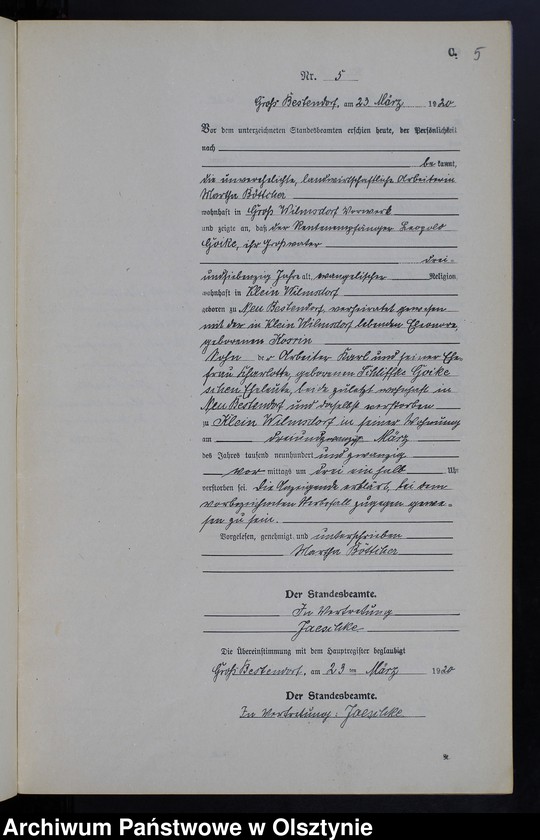 C. 5
Nr. 5
Groß Bestendorf, am 23 März 1920
Vor dem unterzeichneten Standesbeamten erschien heute, der Persönlichkeit
nach
be kannt,
die unverehelichte, landwirtschaftliche Arbeiterin
Martha Böttcher
wohnhaft in Groß Wilmsdorf Vorwerk
und zeigte an, daß der Rentenempfänger Leopold
Goike, ihr Großvater
drei-
undsiebenzig Jahre alt, evangelischer Religion
wohnhaft in Klein Wilmsdorf
geboren zu Neu Bestendorf, verheiratet gewesen
mit der in Klein Wilmsdorf lebenden Eleonore
geborenen
Sohn des Arbeiter Karl und seiner Ehe-
frau Charlotte, geborenen Goike
schen Eheleute, beide zuletzt wohnhaft in
Neu Bestendorf und daselbst verstorben
zu Klein Wilmsdorf in seiner Wohnung
am dreiundzwanzig März
des Jahres tausend neunhundert und zwanzig
vor mittags um drei ein halb Uhr
verstorben sei. Die Anzeigende erklärt, bei dem
vorbezeichneten Sterbefall zugegen gewe-
sen zu sein.
Vorgelesen, genehmigt und unterschrieben
Martha Böttcher
Der Standesbeamte.
In Vertretung
Jaeschke
Die Übereinstimmung mit dem Hauptregister beglaubigt
Groß Bestendorf, am 23 ten März 1920
Der Standesbeamte.
In Vertretung: Jaeschke
Archiwum Państwowe w Olsztynie